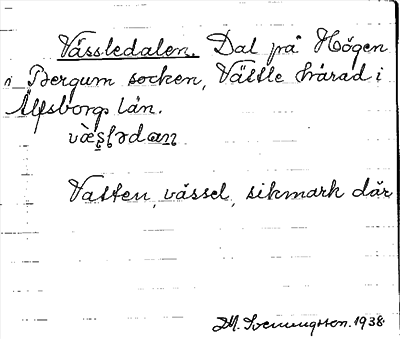 Vässledalen. Dal på Högen
i Bergum socken, Vättle härad i
Älfsborgs län.
Vatten, vässel, sikmark där
M. Svenningsson. 1938.